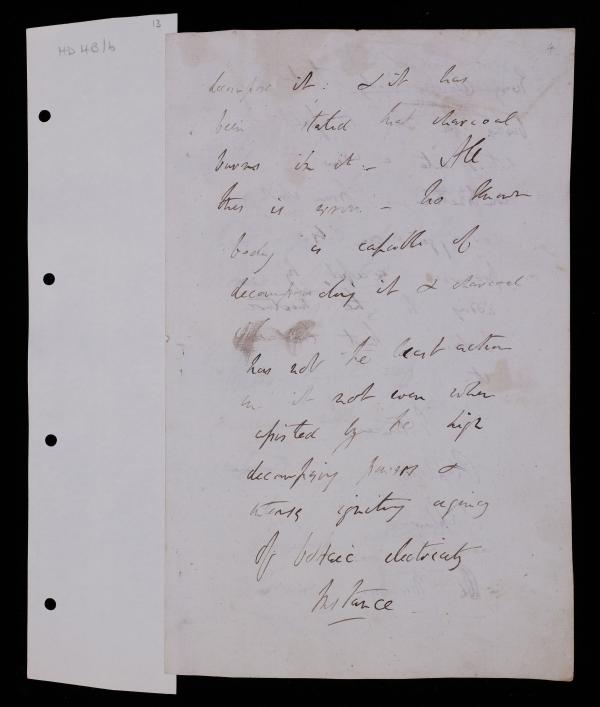 13
HD 4B/b
4
decompose it: & it has
been stated that charcoal
burns in it. – All
this is error – No known
body is capable of
decompounding it & charcoal
has not the least action
on it not even when
assisted by the high
decomposing powers &
intense igniting agency
of Voltaic electricity
Instance